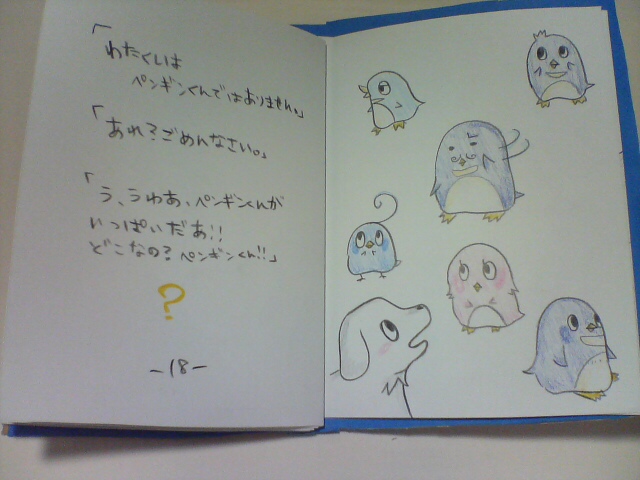 「わたくしは
ペンギンくんではありません。」
「あれ？ごめんなさい。」
「う、うわあ、ペンギンくんが
いっぱいだあ!!
どこなの？ペンギンくん!!」
?
-18-